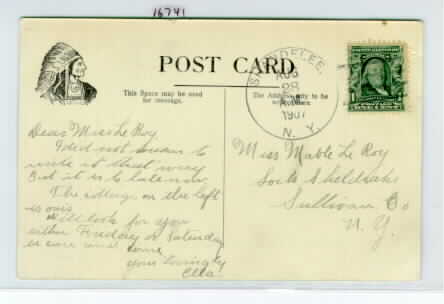 16741
POST CARD
This Space may be used
for message.
The Address may to be
SHANDELEE,
AUG
28
1907
N. Y.
ONE CENT
Dear Miss Le Roy
I did not mean to
write it that way
But it is to late now.
The cottage on the left
is ours
Will look for you
either Thursday or Saturday
be sure and come
your lovingly
Ella
Miss Mable Le Roy
Sullivan Co
N. Y.